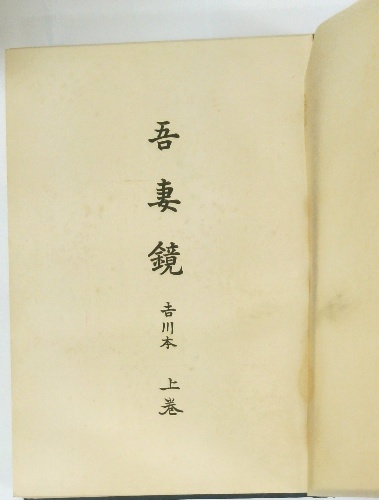 吾妻鏡 吉川本 上巻